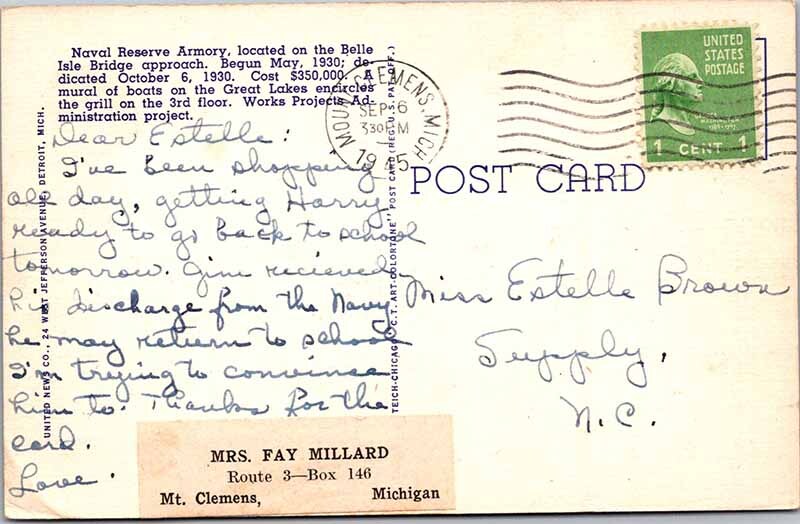 Naval Reserve Armory, located on the Belle
Isle Bridge approach. Begun May, 1930; de-
dicated October 6, 1930. Cost $350,000. A
mural of boats on the Great Lakes encircles
the grill on the 3rd floor. Works Projects Ad-
ministration project.
Dear Estelle:
I've been shopping
all day, getting Harry
ready to go back to school
tomorrow. Jim recieved
his discharge from the Navy
he may return to school
I'm trying to convince
him to. Thanks for the
card.
Love.
MRS. FAY MILLARD
Route 3—Box 146
Mt. Clemens, Michigan
UNITED NEWS CO., 24 WEST JEFFERSON AVENUE, DETROIT, MICH.
TEICH-CHICAGO "C.T. ART-COLORTONE" POST CARD (REG. U.S. PAT. OFF.)
MOUNT CLEMENS, MICH.
SEP 6
330 PM
1945
UNITED
STATES
POSTAGE
1 CENT 1
POST CARD
Miss Estelle Brown
Supply,
N.C.